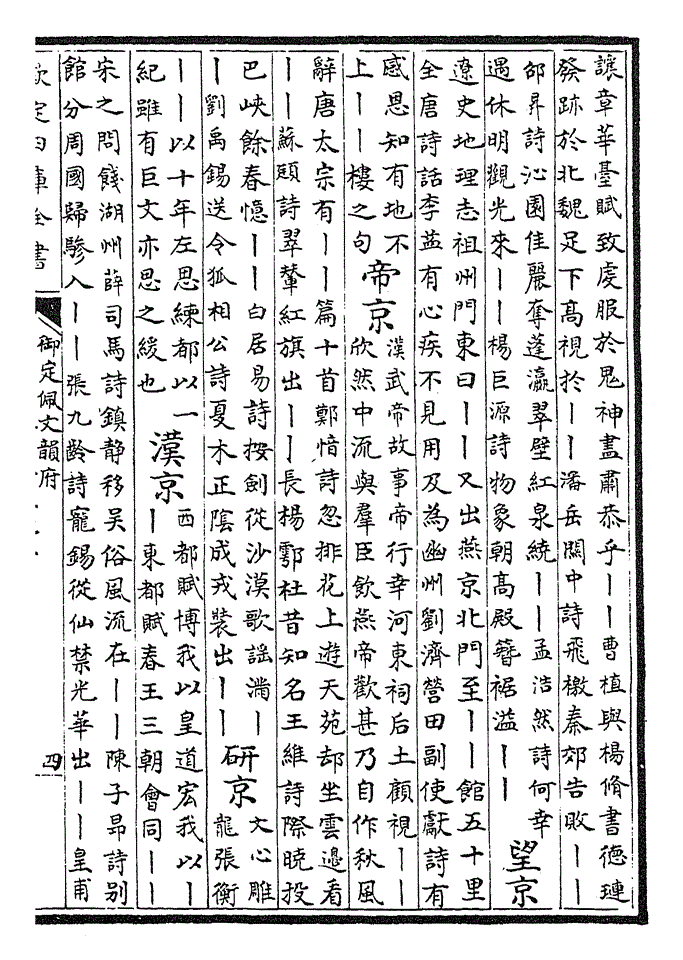 讓章華臺賦致虔服於鬼神盡肅恭乎丨丨曹植與楊脩書德璉
發跡於北魏足下髙視於丨丨潘岳關中詩飛檄秦郊告敗丨丨
邵昇詩沁園佳麗奪蓬瀛翠壁紅泉繞丨丨孟浩然詩何幸
遇休明觀光來丨丨楊巨源詩物象朝髙殿簪裾溢丨丨
望京
遼史地理志祖州門東曰丨丨又出燕京北門至丨丨館五十里
全唐詩話李益有心疾不見用及為幽州劉濟營田副使獻詩有
感恩知有地不
上丨丨樓之句
帝京
漢武帝故事帝行幸河東祠后土顧視丨丨
欣然中流與羣臣飲燕帝歡甚乃自作秋風
辭唐太宗有丨丨篇十首鄭愔詩忽排花上遊天苑却坐雲邊看
丨丨蘇頲詩翠輦紅旗出丨丨長楊鄠杜昔知名王維詩際曉投
巴峽餘春憶丨丨白居易詩按劍從沙漠歌謠滿丨
丨劉禹錫送令狐相公詩夏木正陰成戎裝出丨丨
研京
文心雕
龍張衡
丨丨以十年左思練都以一
紀雖有巨文亦思之緩也
漢京
西都賦博我以皇道宏我以丨
丨東都賦春王三朝會同丨丨
宋之問餞湖州薛司馬詩鎮静移吳俗風流在丨丨陳子昂詩别
館分周國歸驂入丨丨張九齡詩寵錫從仙禁光華出丨丨皇甫
欽定四庫全書
御定佩文韻府
四